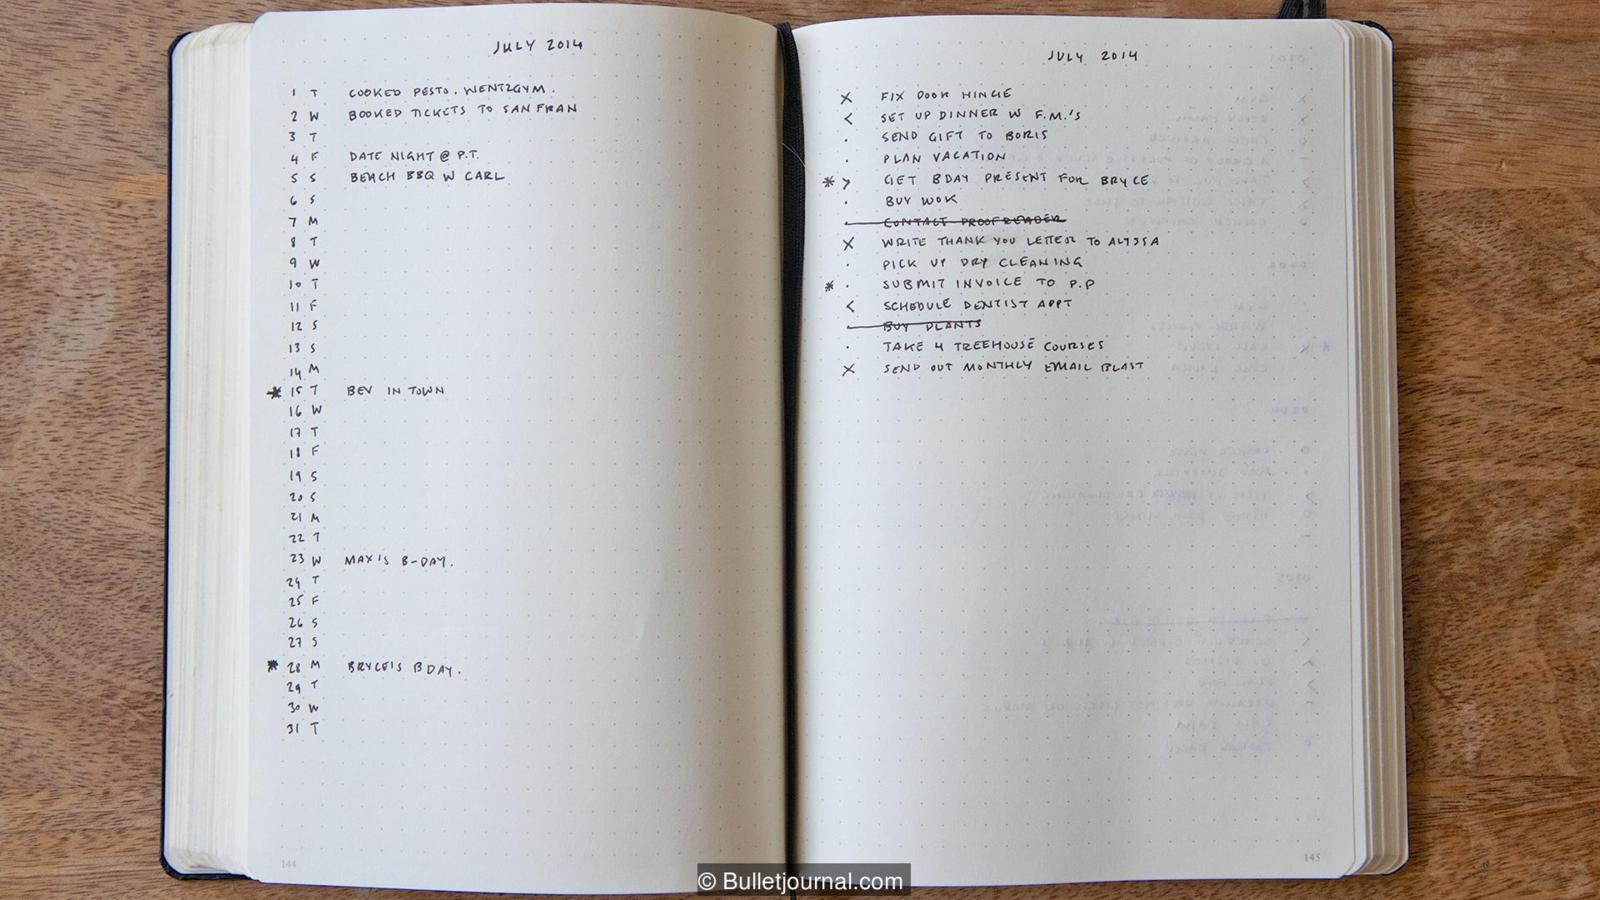 JULY 2014
1 T COOKED PESTO. WENT2GYM.
2 W BOOKED TICKETS TO SAN FRAN
3 T
4 F DATE NIGHT @ P.T.
5 S BEACH BBQ W CARL
6 S
7 M
8 T
9 W
10 T
11 F
12 S
13 S
14 M
* 15 T BEV IN TOWN
16 W
17 T
18 F
19 S
20 S
21 M
22 T
23 W MAX'S B-DAY.
24 T
25 F
26 S
27 S
* 28 M BRYCE'S BDAY.
29 T
30 W
31 T
144
JULY 2014
X FIX DOOR HINGE
< SET UP DINNER W F.M.'S
· SEND GIFT TO BORIS
· PLAN VACATION
* > GET BDAY PRESENT FOR BRYCE
· BUY WOK
CONTACT PROOFREADER
X WRITE THANK YOU LETTER TO ALYSSA
· PICK UP DRY CLEANING
* · SUBMIT INVOICE TO P.P
< SCHEDULE DENTIST APPT
BUY PLANTS
· TAKE 4 TREEHOUSE COURSES
X SEND OUT MONTHLY EMAIL BLAST
145
© Bulletjournal.com